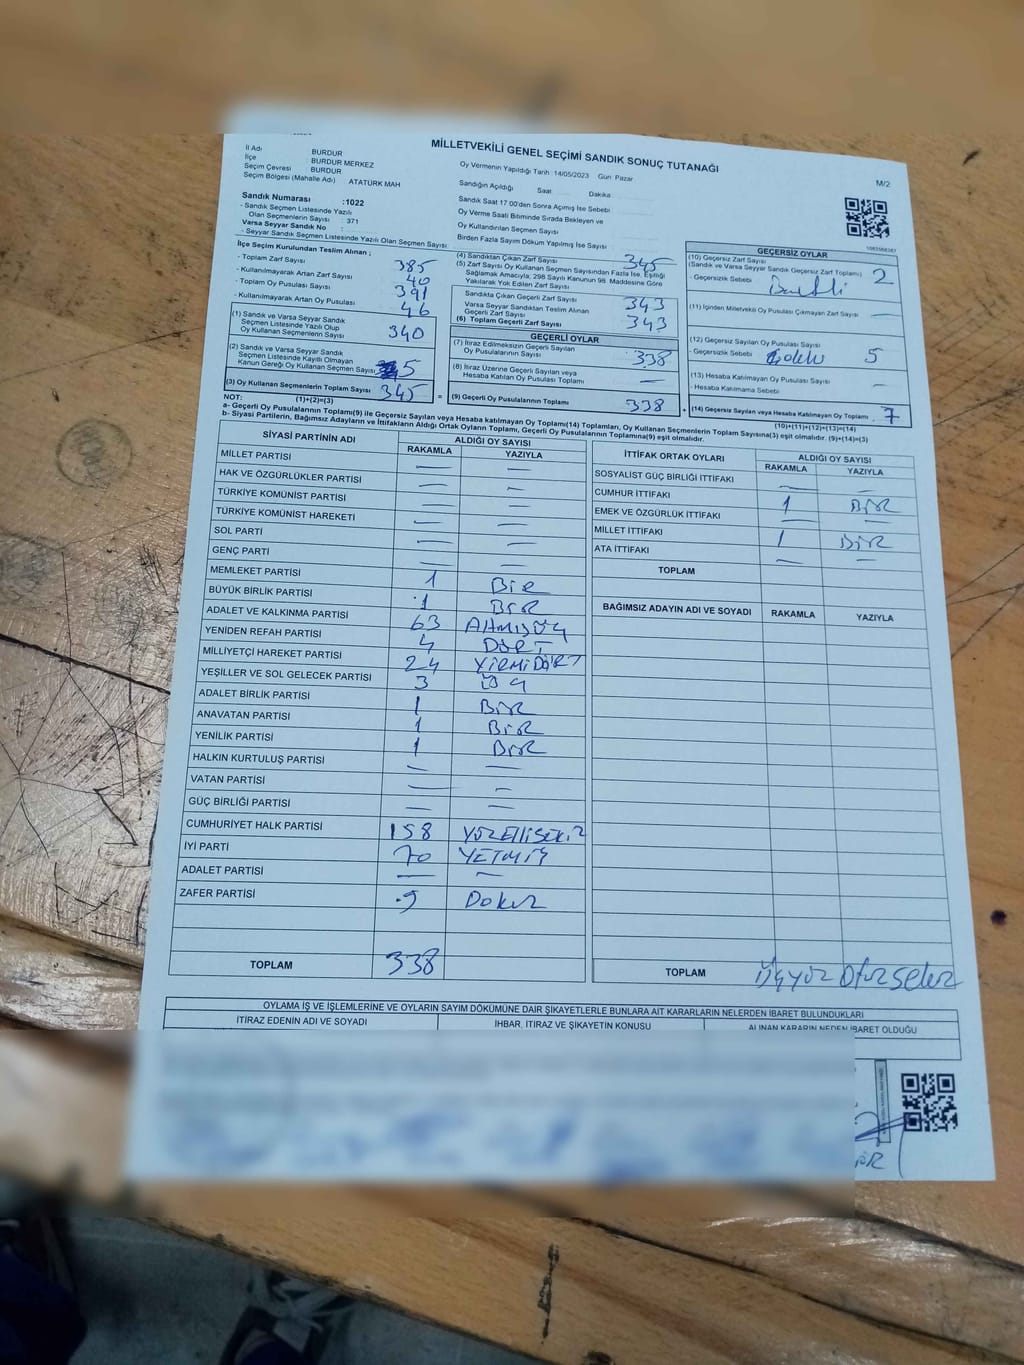 MİLLETVEKİLİ GENEL SEÇİMİ SANDIK SONUÇ TUTANAĞI
M/2
İl Adı : BURDUR
İlçe : BURDUR MERKEZ
Seçim Çevresi : BURDUR
Seçim Bölgesi (Mahalle Adı) : ATATÜRK MAH
Sandık Numarası :1022
- Sandık Seçmen Listesinde Yazılı
Olan Seçmenlerin Sayısı : 371
Varsa Seyyar Sandık No :
- Seyyar Sandık Seçmen Listesinde Yazılı Olan Seçmen Sayısı
Oy Vermenin Yapıldığı Tarih :14/05/2023 Gün: Pazar
Sandığın Açıldığı Saat Dakika
Sandık Saat 17.00'den Sonra Açılmış İse Sebebi
Oy Verme Saati Bitiminde Sırada Bekleyen ve
Oy Kullandırılan Seçmen Sayısı
Birden Fazla Sayım Döküm Yapılmış İse Sayısı
İlçe Seçim Kurulundan Teslim Alınan ;
- Toplam Zarf Sayısı 385
- Kullanılmayarak Artan Zarf Sayısı 40
- Toplam Oy Pusulası Sayısı 391
- Kullanılmayarak Artan Oy Pusulası 46
(1) Sandık ve Varsa Seyyar Sandık
Seçmen Listesinde Yazılı Olup
Oy Kullanan Seçmenlerin Sayısı 340
(2) Sandık ve Varsa Seyyar Sandık
Seçmen Listesinde Kayıtlı Olmayan
Kanun Gereği Oy Kullanan Seçmen Sayısı 5
(3) Oy Kullanan Seçmenlerin Toplam Sayısı 345
(4) Sandıktan Çıkan Zarf Sayısı 345
(5) Zarf Sayısı Oy Kullanan Seçmen Sayısından Fazla İse, Eşitliği
Sağlamak Amacıyla; 298 Sayılı Kanunun 98. Maddesine Göre
Yakılarak Yok Edilen Zarf Sayısı
Sandıkta Çıkan Geçerli Zarf Sayısı 343
Varsa Seyyar Sandıktan Teslim Alınan
Geçerli Zarf Sayısı
(6) Toplam Geçerli Zarf Sayısı 343
GEÇERLİ OYLAR
(7) İtiraz Edilmeksizin Geçerli Sayılan
Oy Pusulalarının Sayısı 338
(8) İtiraz Üzerine Geçerli Sayılan veya
Hesaba Katılan Oy Pusulası Toplamı —
= (9) Geçerli Oy Pusulalarının Toplamı 338
GEÇERSİZ OYLAR
(10) Geçersiz Zarf Sayısı
(Sandık ve Varsa Seyyar Sandık Geçersiz Zarf Toplamı) 2
- Geçersizlik Sebebi
(11) İçinden Milletvekili Oy Pusulası Çıkmayan Zarf Sayısı —
(12) Geçersiz Sayılan Oy Pusulası Sayısı
- Geçersizlik Sebebi 5
(13) Hesaba Katılmayan Oy Pusulası Sayısı —
- Hesaba Katılmama Sebebi
+ (14) Geçersiz Sayılan veya Hesaba Katılmayan Oy Toplamı 7
NOT: (1)+(2)=(3)
(10)+(11)+(12)+(13)=(14)
a- Geçerli Oy Pusulalarının Toplamı(9) ile Geçersiz Sayılan veya Hesaba Katılmayan Oy Toplamı(14) Toplamları, Oy Kullanan Seçmenlerin Toplam Sayısına(3) eşit olmalıdır. (9)+(14)=(3)
b- Siyasi Partilerin, Bağımsız Adayların ve İttifakların Aldığı Ortak Oyların Toplamı, Geçerli Oy Pusulalarının Toplamına(9) eşit olmalıdır.
SİYASİ PARTİNİN ADI ALDIĞI OY SAYISI
RAKAMLA YAZIYLA
MİLLET PARTİSİ — —
HAK VE ÖZGÜRLÜKLER PARTİSİ — —
TÜRKİYE KOMÜNİST PARTİSİ — —
TÜRKİYE KOMÜNİST HAREKETİ — —
SOL PARTİ — —
GENÇ PARTİ — —
MEMLEKET PARTİSİ 1 BİR
BÜYÜK BİRLİK PARTİSİ 1 BİR
ADALET VE KALKINMA PARTİSİ 63 ALTMIŞÜÇ
YENİDEN REFAH PARTİSİ 4 DÖRT
MİLLİYETÇİ HAREKET PARTİSİ 24 YİRMİDÖRT
YEŞİLLER VE SOL GELECEK PARTİSİ 3 ÜÇ
ADALET BİRLİK PARTİSİ 1 BİR
ANAVATAN PARTİSİ 1 BİR
YENİLİK PARTİSİ 1 BİR
HALKIN KURTULUŞ PARTİSİ — —
VATAN PARTİSİ — —
GÜÇ BİRLİĞİ PARTİSİ — —
CUMHURİYET HALK PARTİSİ 158 YÜZELLİSEKİZ
İYİ PARTİ 70 YETMİŞ
ADALET PARTİSİ — —
ZAFER PARTİSİ 9 Dokuz
TOPLAM 338
İTTİFAK ORTAK OYLARI ALDIĞI OY SAYISI
RAKAMLA YAZIYLA
SOSYALİST GÜÇ BİRLİĞİ İTTİFAKI — —
CUMHUR İTTİFAKI 1 BİR
EMEK VE ÖZGÜRLÜK İTTİFAKI — —
MİLLET İTTİFAKI 1 BİR
ATA İTTİFAKI — —
TOPLAM
BAĞIMSIZ ADAYIN ADI VE SOYADI RAKAMLA YAZIYLA
TOPLAM Üçyüz Otuzsekiz
OYLAMA İŞ VE İŞLEMLERİNE VE OYLARIN SAYIM DÖKÜMÜNE DAİR ŞİKAYETLERLE BUNLARA AİT KARARLARIN NELERDEN İBARET BULUNDUKLARI
İTİRAZ EDENİN ADI VE SOYADI İHBAR, İTİRAZ VE ŞİKAYETİN KONUSU ALINAN KARARIN NEDEN İBARET OLDUĞU